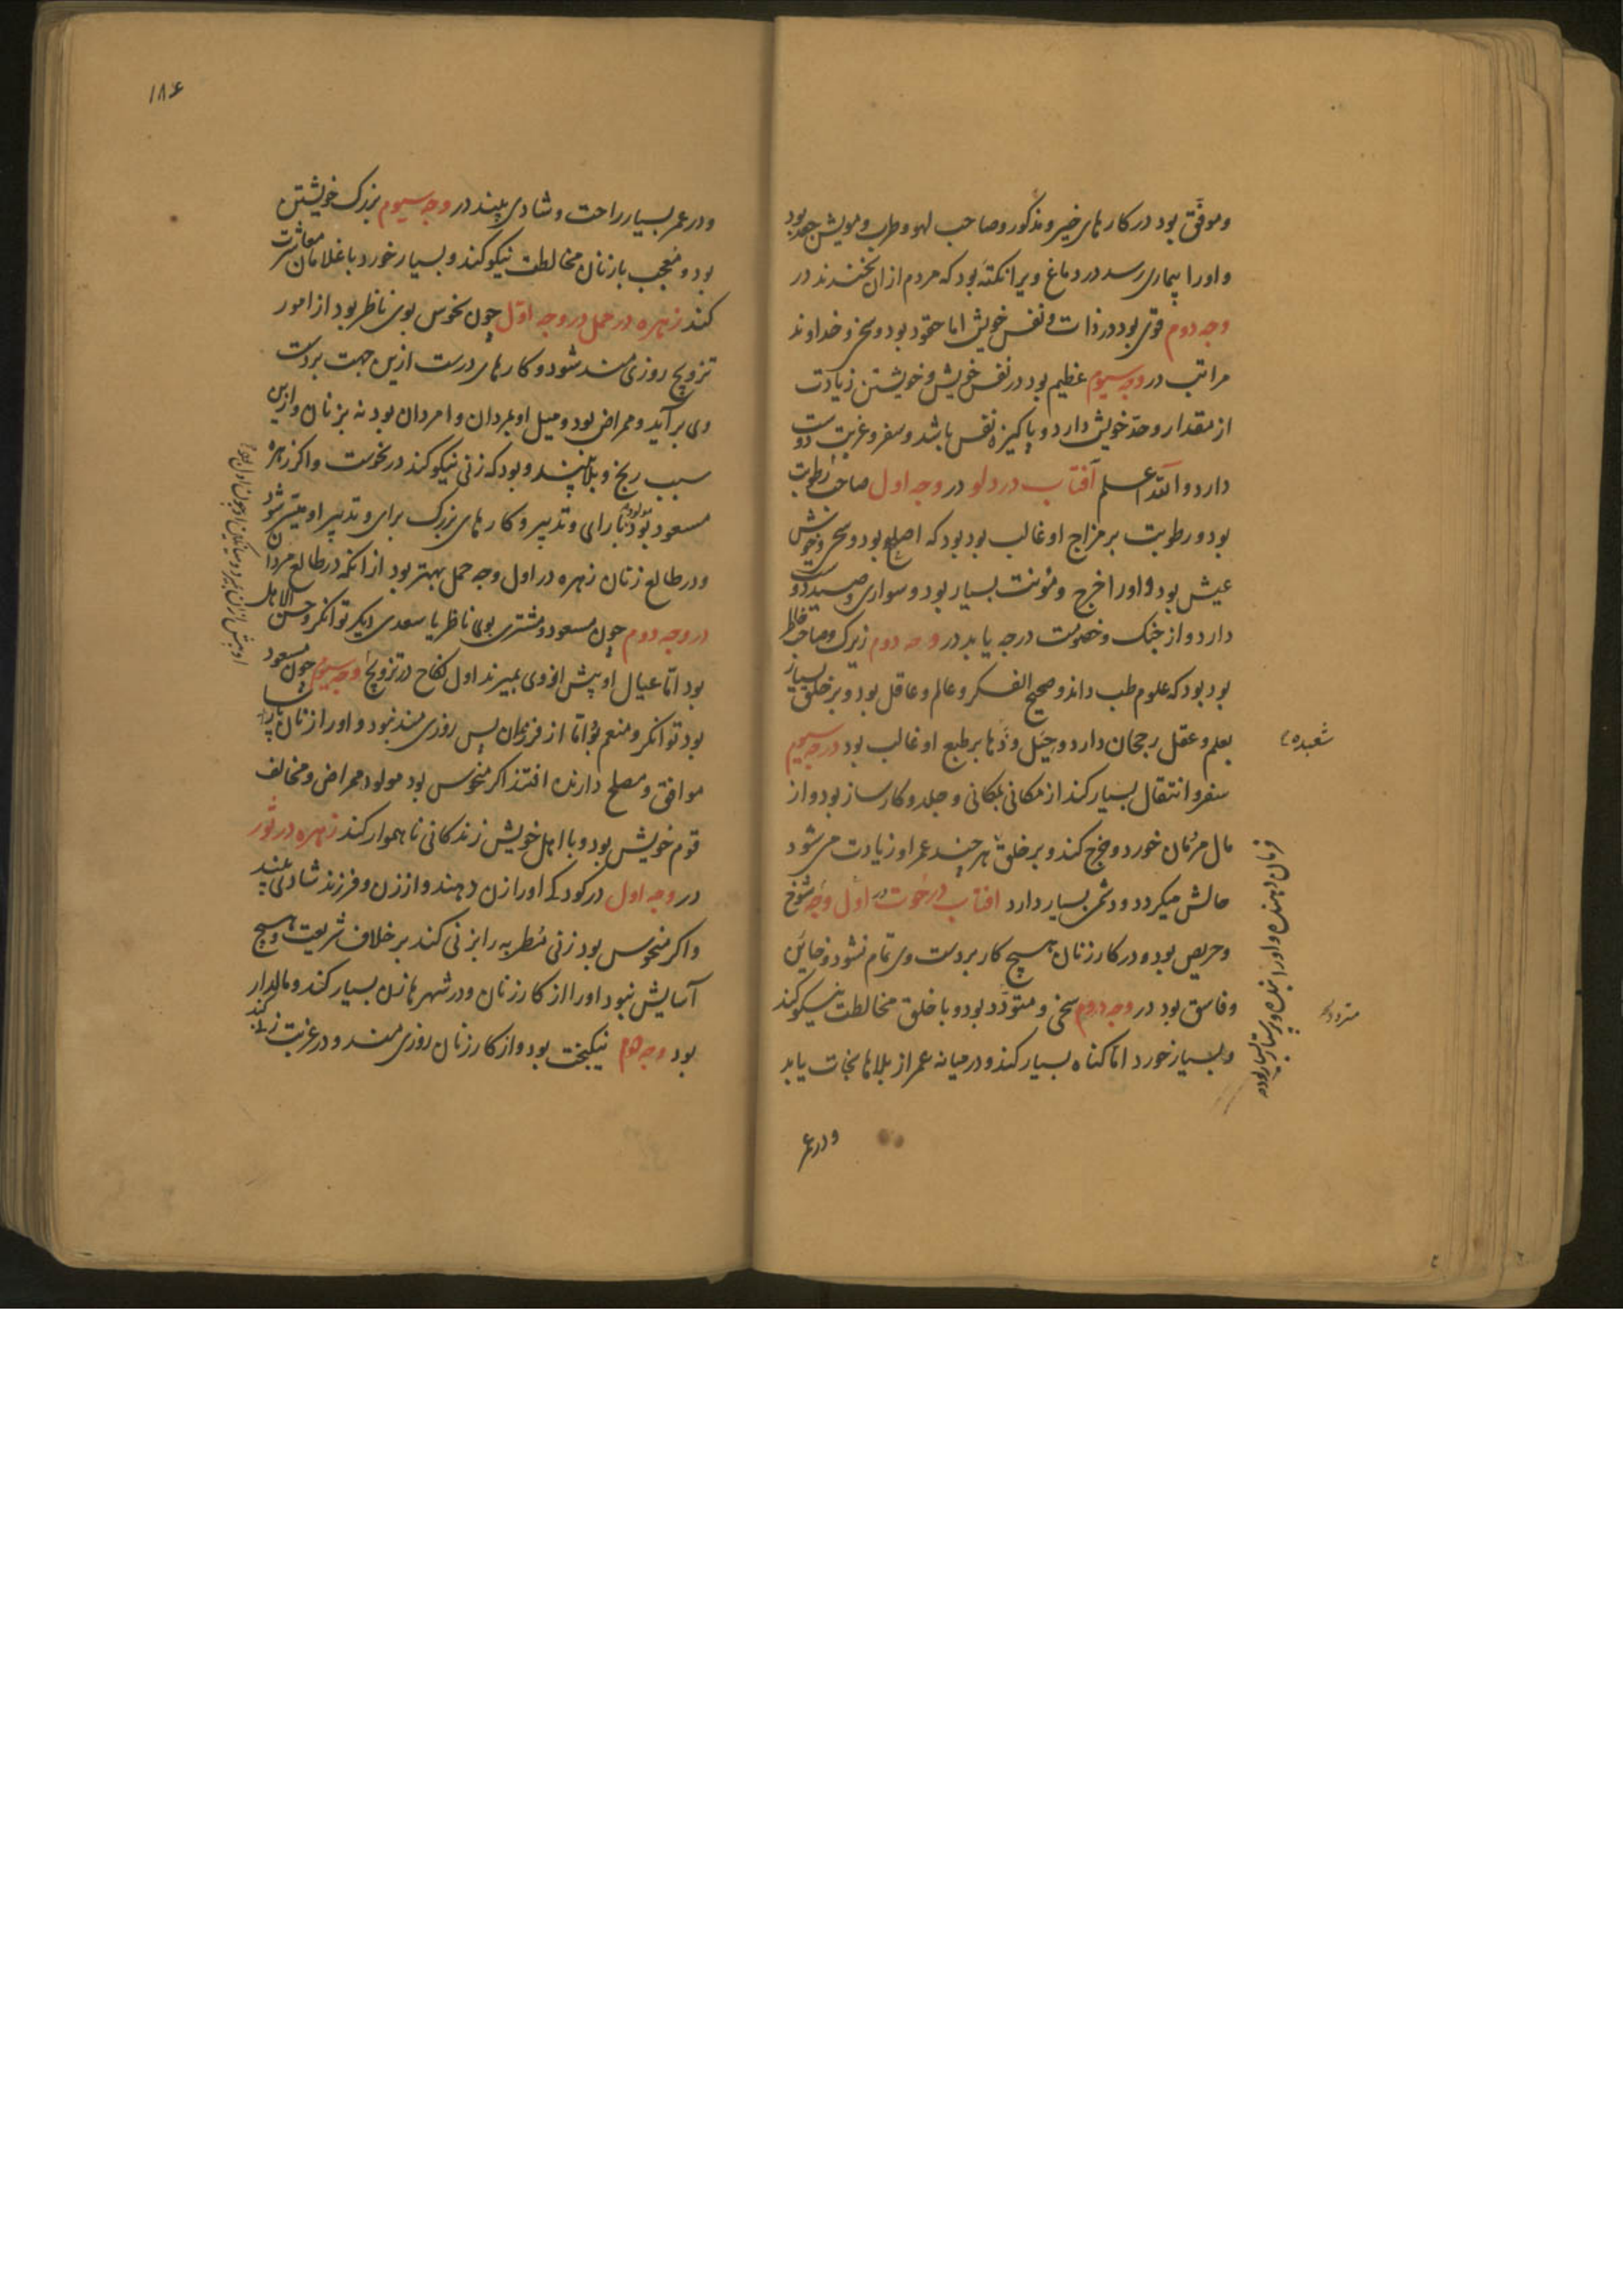 و موفق بود در کارهای خیر و مذکور و صاحب لهو و طرب و مویش جعد بود
و او را بیماری رسد در دماغ و یرا نکته بود که مردم از ان بخندند در
وجه دوم قوی بود در ذات و نفس خویش اما حقود بود و سخی و خداوند
مراتب در وجه سیوم عظیم بود در نفس خویش و خویشتن زیادت
از مقدار و حد خویش دارد و پاکیزه نفس باشد و سفر و غربت دوست
دارد والله اعلم آفتاب در دلو در وجه اول صاحب رطوبت
بود و رطوبت بر مزاج او غالب بود بود که اصلع بود و سخی و خوش
عیش بود و او را خرج و مؤنت بسیار بود و سواری و صید دوست
دارد و از جنک و خصومت درجه یابد در وجه دوم زیرک و صاحب خاطر
بود بود که علوم طب داند و صحیح الفکر و عالم و عاقل بود و بر خلق بسیار
بعلم و عقل رجحان دارد و حیل و دها بر طبع او غالب بود در وجه سیوم
شعبده
سفر و انتقال بسیار کند از مکانی بمکانی و جلد و کارساز بود و از
مال مردمان خورد و خرج کند و بر خلق هر چند عمر او زیادت می شود
حالش میکردد و دشمن بسیار دارد افتاب در حوت در اول وجه شوخ
و حریص بود و در کار زنان هیچ کار بر دست وی تمام نشود و خاین
و فاسق بود در وجه دوم سخی و متودد بود و با خلق مخالطت نیکو کند
و بسیار خورد اما کناه بسیار کند و در میانه عمر از بلاها نجات یابد
فرمان دهنده و او را بنده و پرستار بسیار بود
و در عمر
۱۸۶
و در عمر بسیار راحت و شادی بیند در وجه سیوم بزرک خویشتن
بود و معجب با زنان مخالطت نیکو کند و بسیار خورد با غلامان معاشرت
کند زهره در حمل در وجه اول چون نحوس بوی ناظر بود از امور
تزویج روزی مند شود و کارهای درست ازین جهت بر دست
وی بر آید و ممراض بود و میل او بمردان و امردان بود نه بزنان و ازین
سبب رنج و بلا بیند و بود که زنی نیکو کند در نحوست و اکر زهره
مسعود بود مولود با رای و تدبیر و کارهای بزرک برای و تدبیر او میسر شود
و در طالع زنان زهره در اول وجه حمل بهتر بود از انکه در طالع مردان
در وجه دوم چون مسعود و مشتری بوی ناظر یا سعدی دیکر توانکر و حسن الاهل
بود اما عیال او پیش از وی بمیرند اول نکاح در تزویج وجه سیوم چون مسعود
بود توانکر و منعم بود اما از فرزندان پس روزی مند نبود و او را زنان پارسا
موافق و مصلح دارنده افتند اکر منحوس بود مولود ممراض و مخالف
قوم خویش بود و با اهل خویش زندکانی ناهموار کند زهره در ثور
در وجه اول در کودکی او را زن دهند و از زن و فرزند شادی بیند
و اکر منحوس بود زنی مطربه را بزنی کند بر خلاف شریعت و هیچ
آسایش نبود او را از کار زنان و در شهرها زن بسیار کند و مالدار
بود وجه دوم نیکبخت بود و از کار زنان روزی مند و در غربت زنی کند